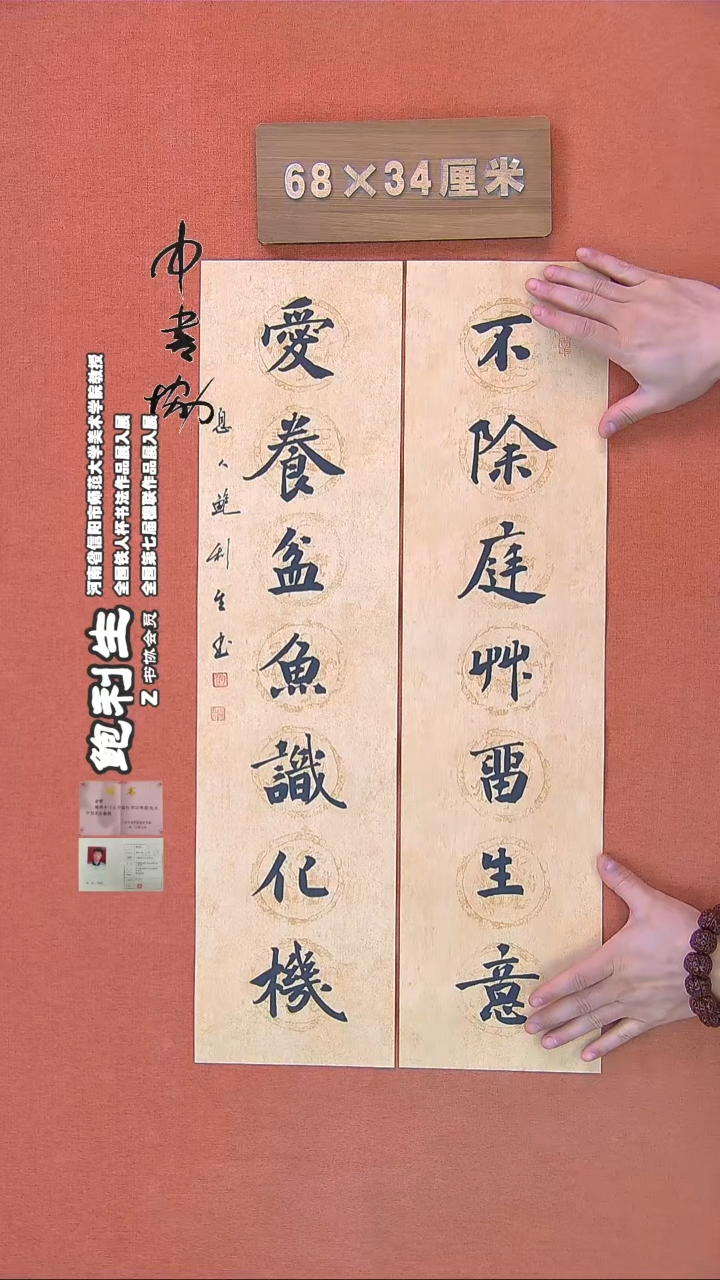 68×34厘米
不除庭艸畱生意
愛養盆魚識化機
息人鲍利生书
中书协
河南省信阳市师范大学美术学院教授
全国牧人杯书法作品展入展
全国第七届楹联作品展入展
鲍利生
Z书协会员